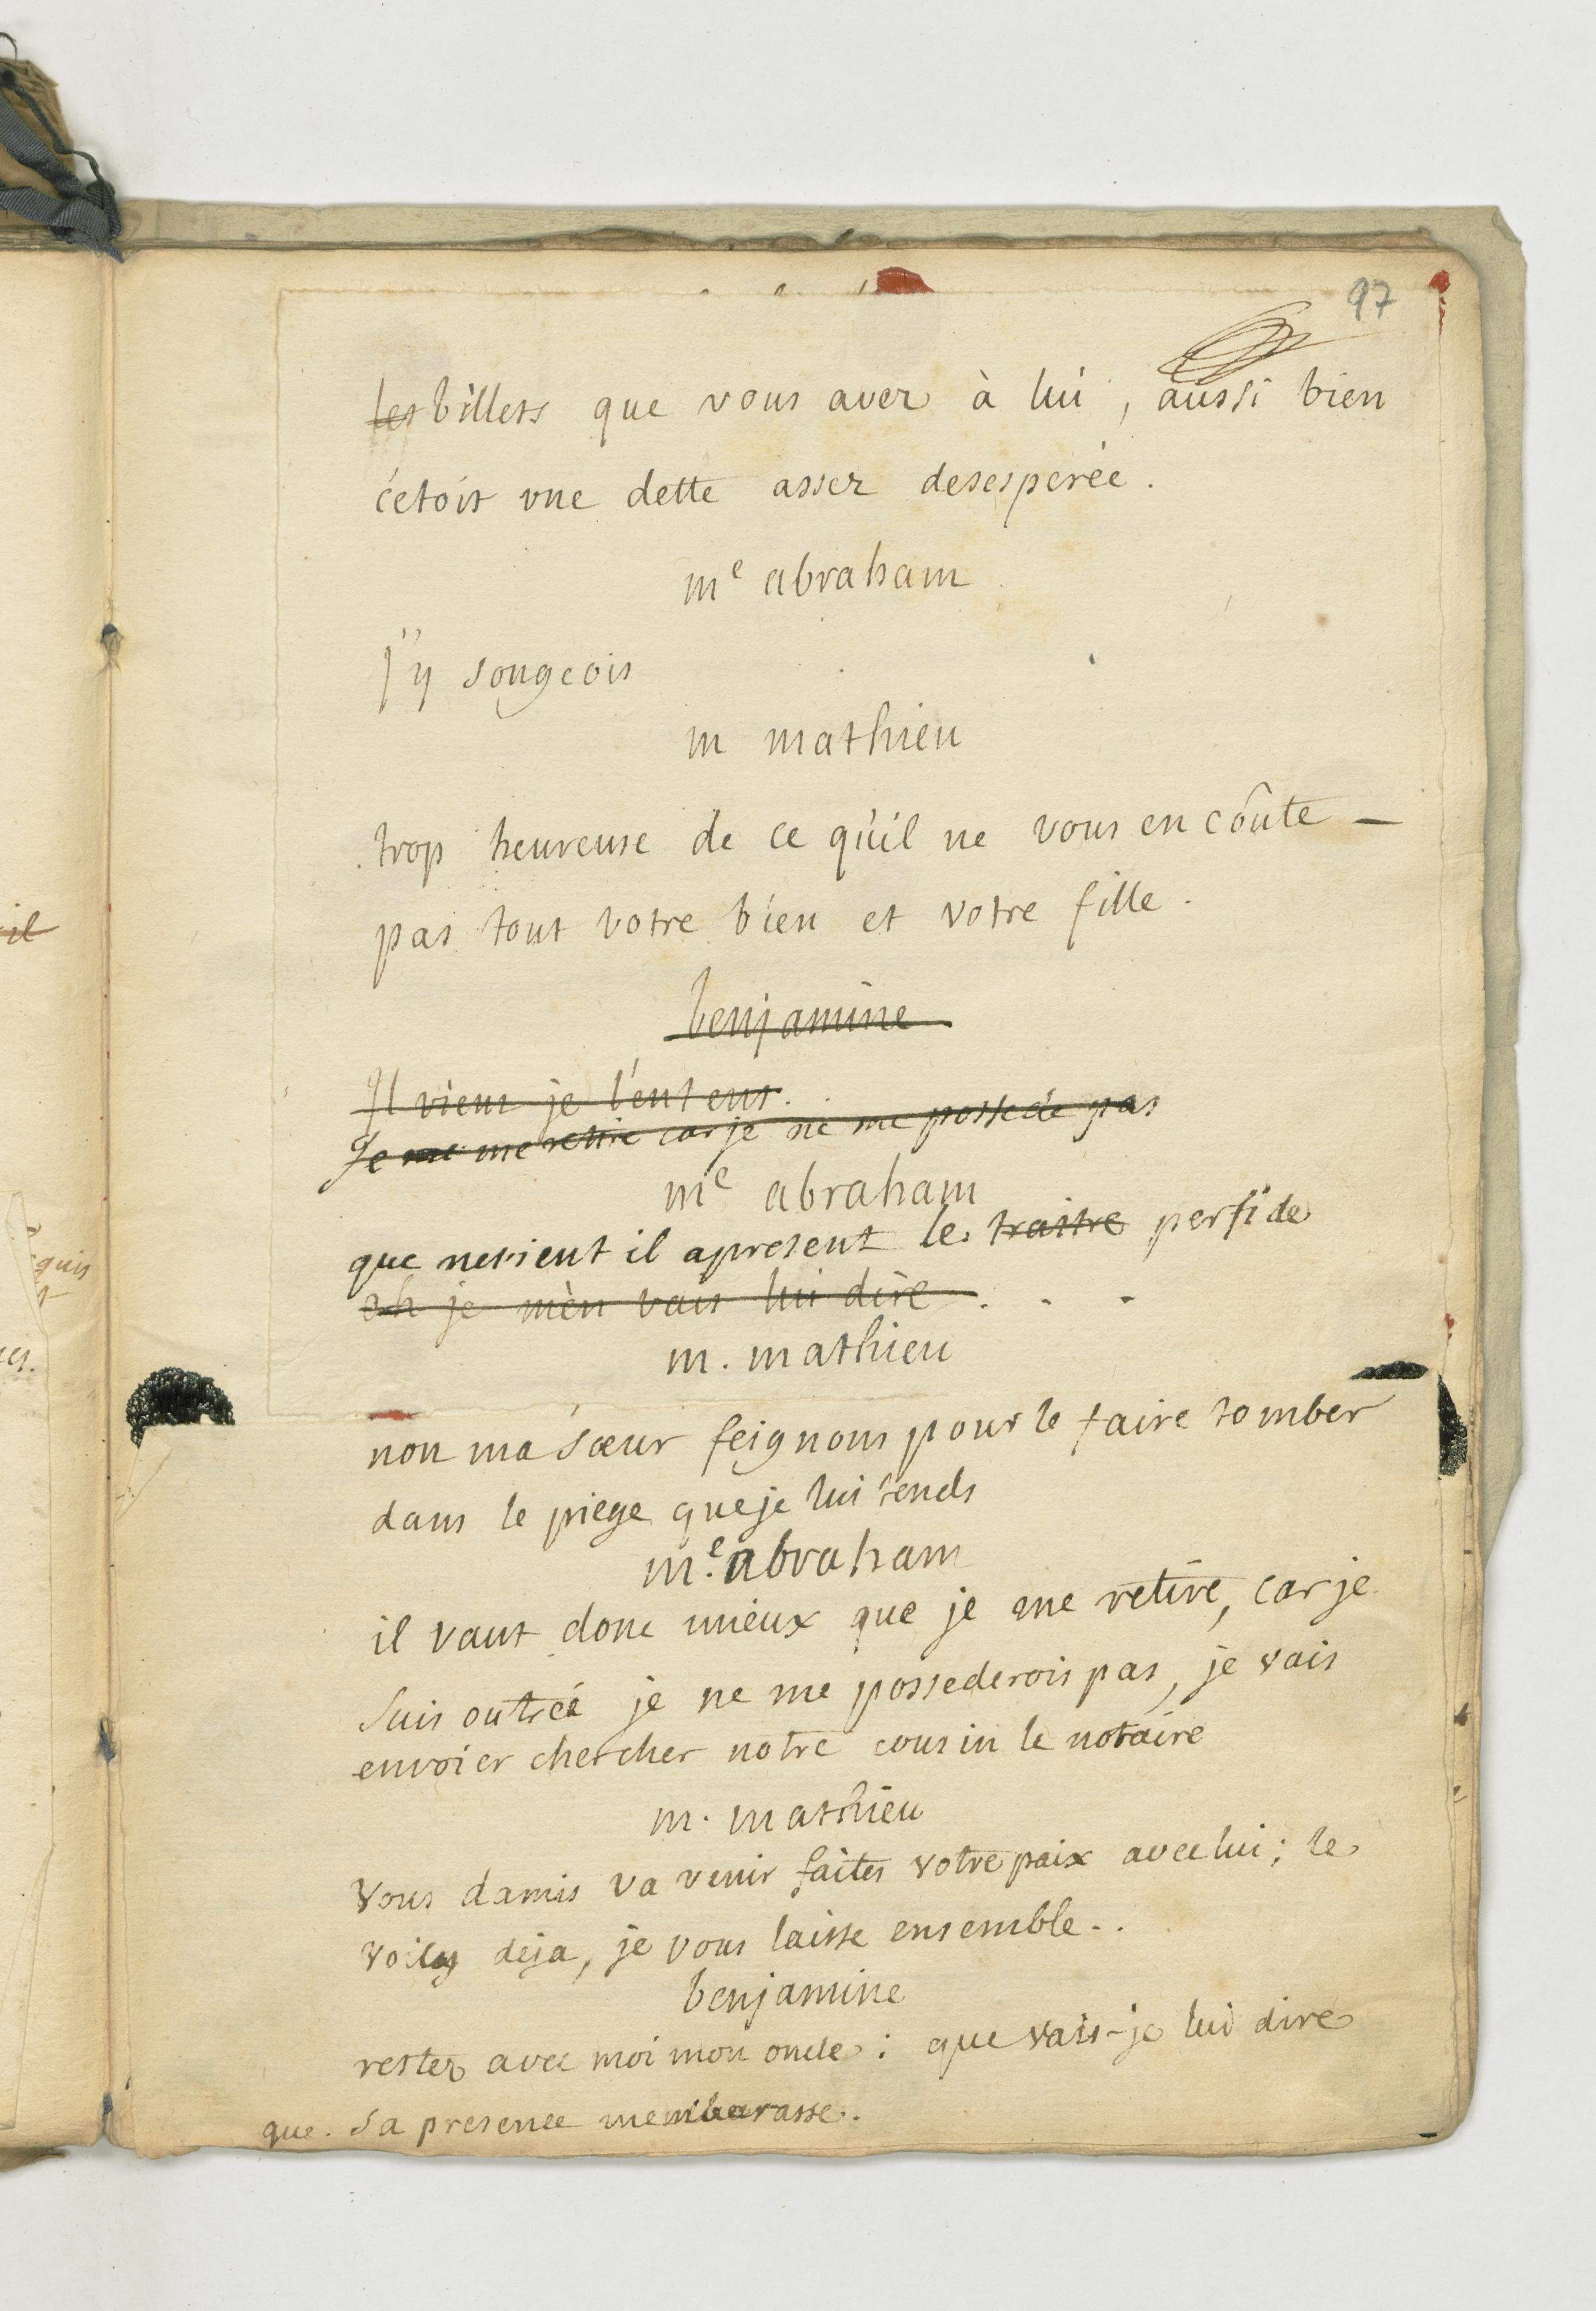 97
les billets que vous avez à lui, aussi bien
c'etois une dette assez desesperée.
me abraham
j'y songeois
m mathieu
trop heureuse de ce qu'il ne vous en coûte -
pas tout votre bien et votre fille.
benjamine
Il vient je l'entens.
Je me me retire car je ne me possede pas
me abraham
que ne vient il apresent le traitre perfide
eh je m'en vais lui dire . . .
m. mathieu
non ma sœur feignons pour le faire tomber
dans le piege que je lui tends
me. abraham
il vaut donc mieux que je me retire, car je
suis outrée je ne me possederois pas, je vais
envoier chercher notre cousin le notaire
m. mathieu
vous damis va venir faites votre paix avec lui; le
voila deja, je vous laisse ensemble..
benjamine
restez avec moi mon oncle: que vais-je lui dire
que sa presence membarasse.
il
quis